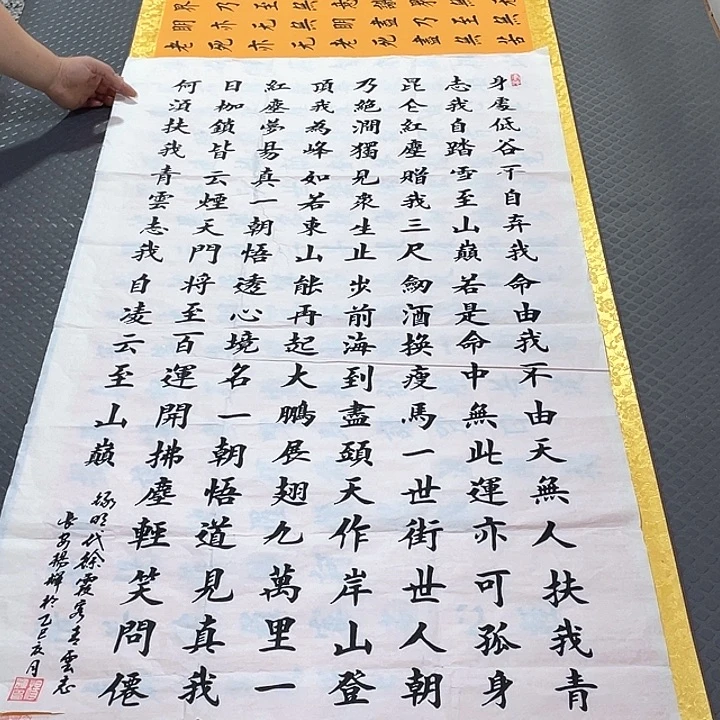 身處低谷不自弃我命由我不由天無人扶我青
志我自踏雪至山巔若是命中無此運亦可孤身
昆仑紅塵贈我三尺劒酒換瘦馬一世街世人朝
乃絶澗獨見來生止步前海到盡頭天作岸山登
頂我為峰如若東山能再起大鵬展翅九萬里一
紅塵夢易真一朝悟透心境名一朝悟道見真我
日枷鎖皆云煙天門将至百運開拂塵輕笑問僊
何須扶我青雲志我自凌云至山巔
録明代徐霞客青雲志
長安楊輝於乙巳夏月